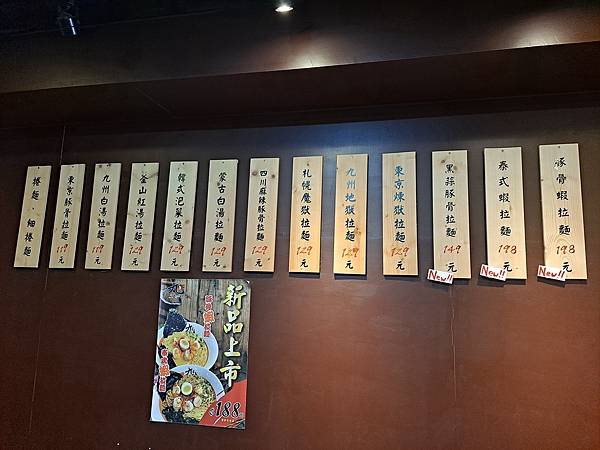 捲麵 細捲麵
東京豚骨拉麵 119元
九州白湯拉麵 119元
釜山紅湯拉麵 129元
韓式泡菜拉麵 129元
蒙古白湯拉麵 129元
四川麻辣豚骨拉麵 129元
札幌魔獄拉麵 129元
九州地獄拉麵 129元
東京煉獄拉麵 129元
黑蒜豚骨拉麵 149元
New!!
泰式蝦拉麵 198元
New!!
豚骨蝦拉麵 198元
New!!
新品上市
188